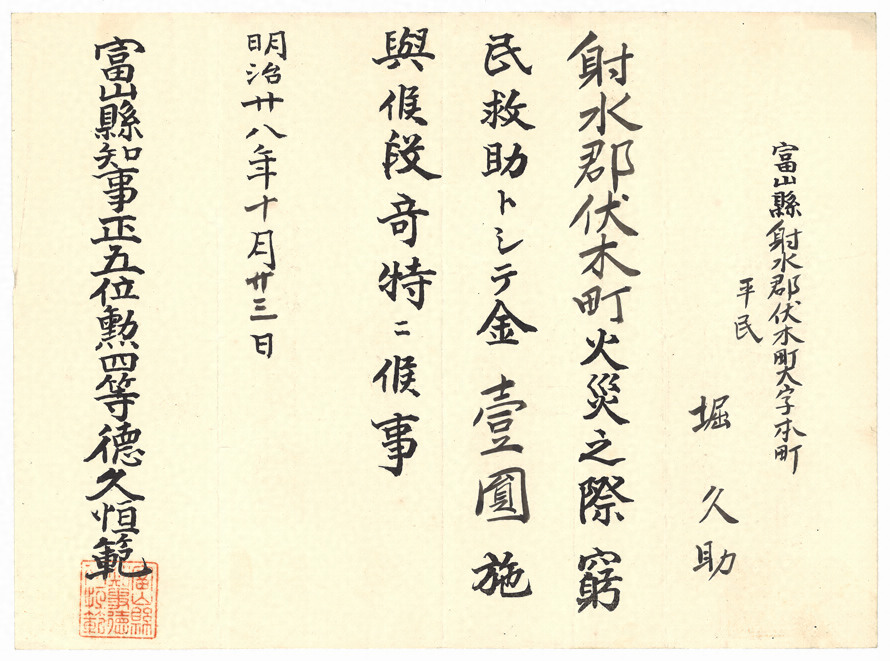 富山縣射水郡伏木町大字本町
平民
堀久助
射水郡伏木町火災之際窮
民救助トシテ金壹圓施
與候段奇特ニ候事
明治廿八年十月廿三日
富山縣知事正五位勲四等德久恒範
富山縣
知事德
久恒範